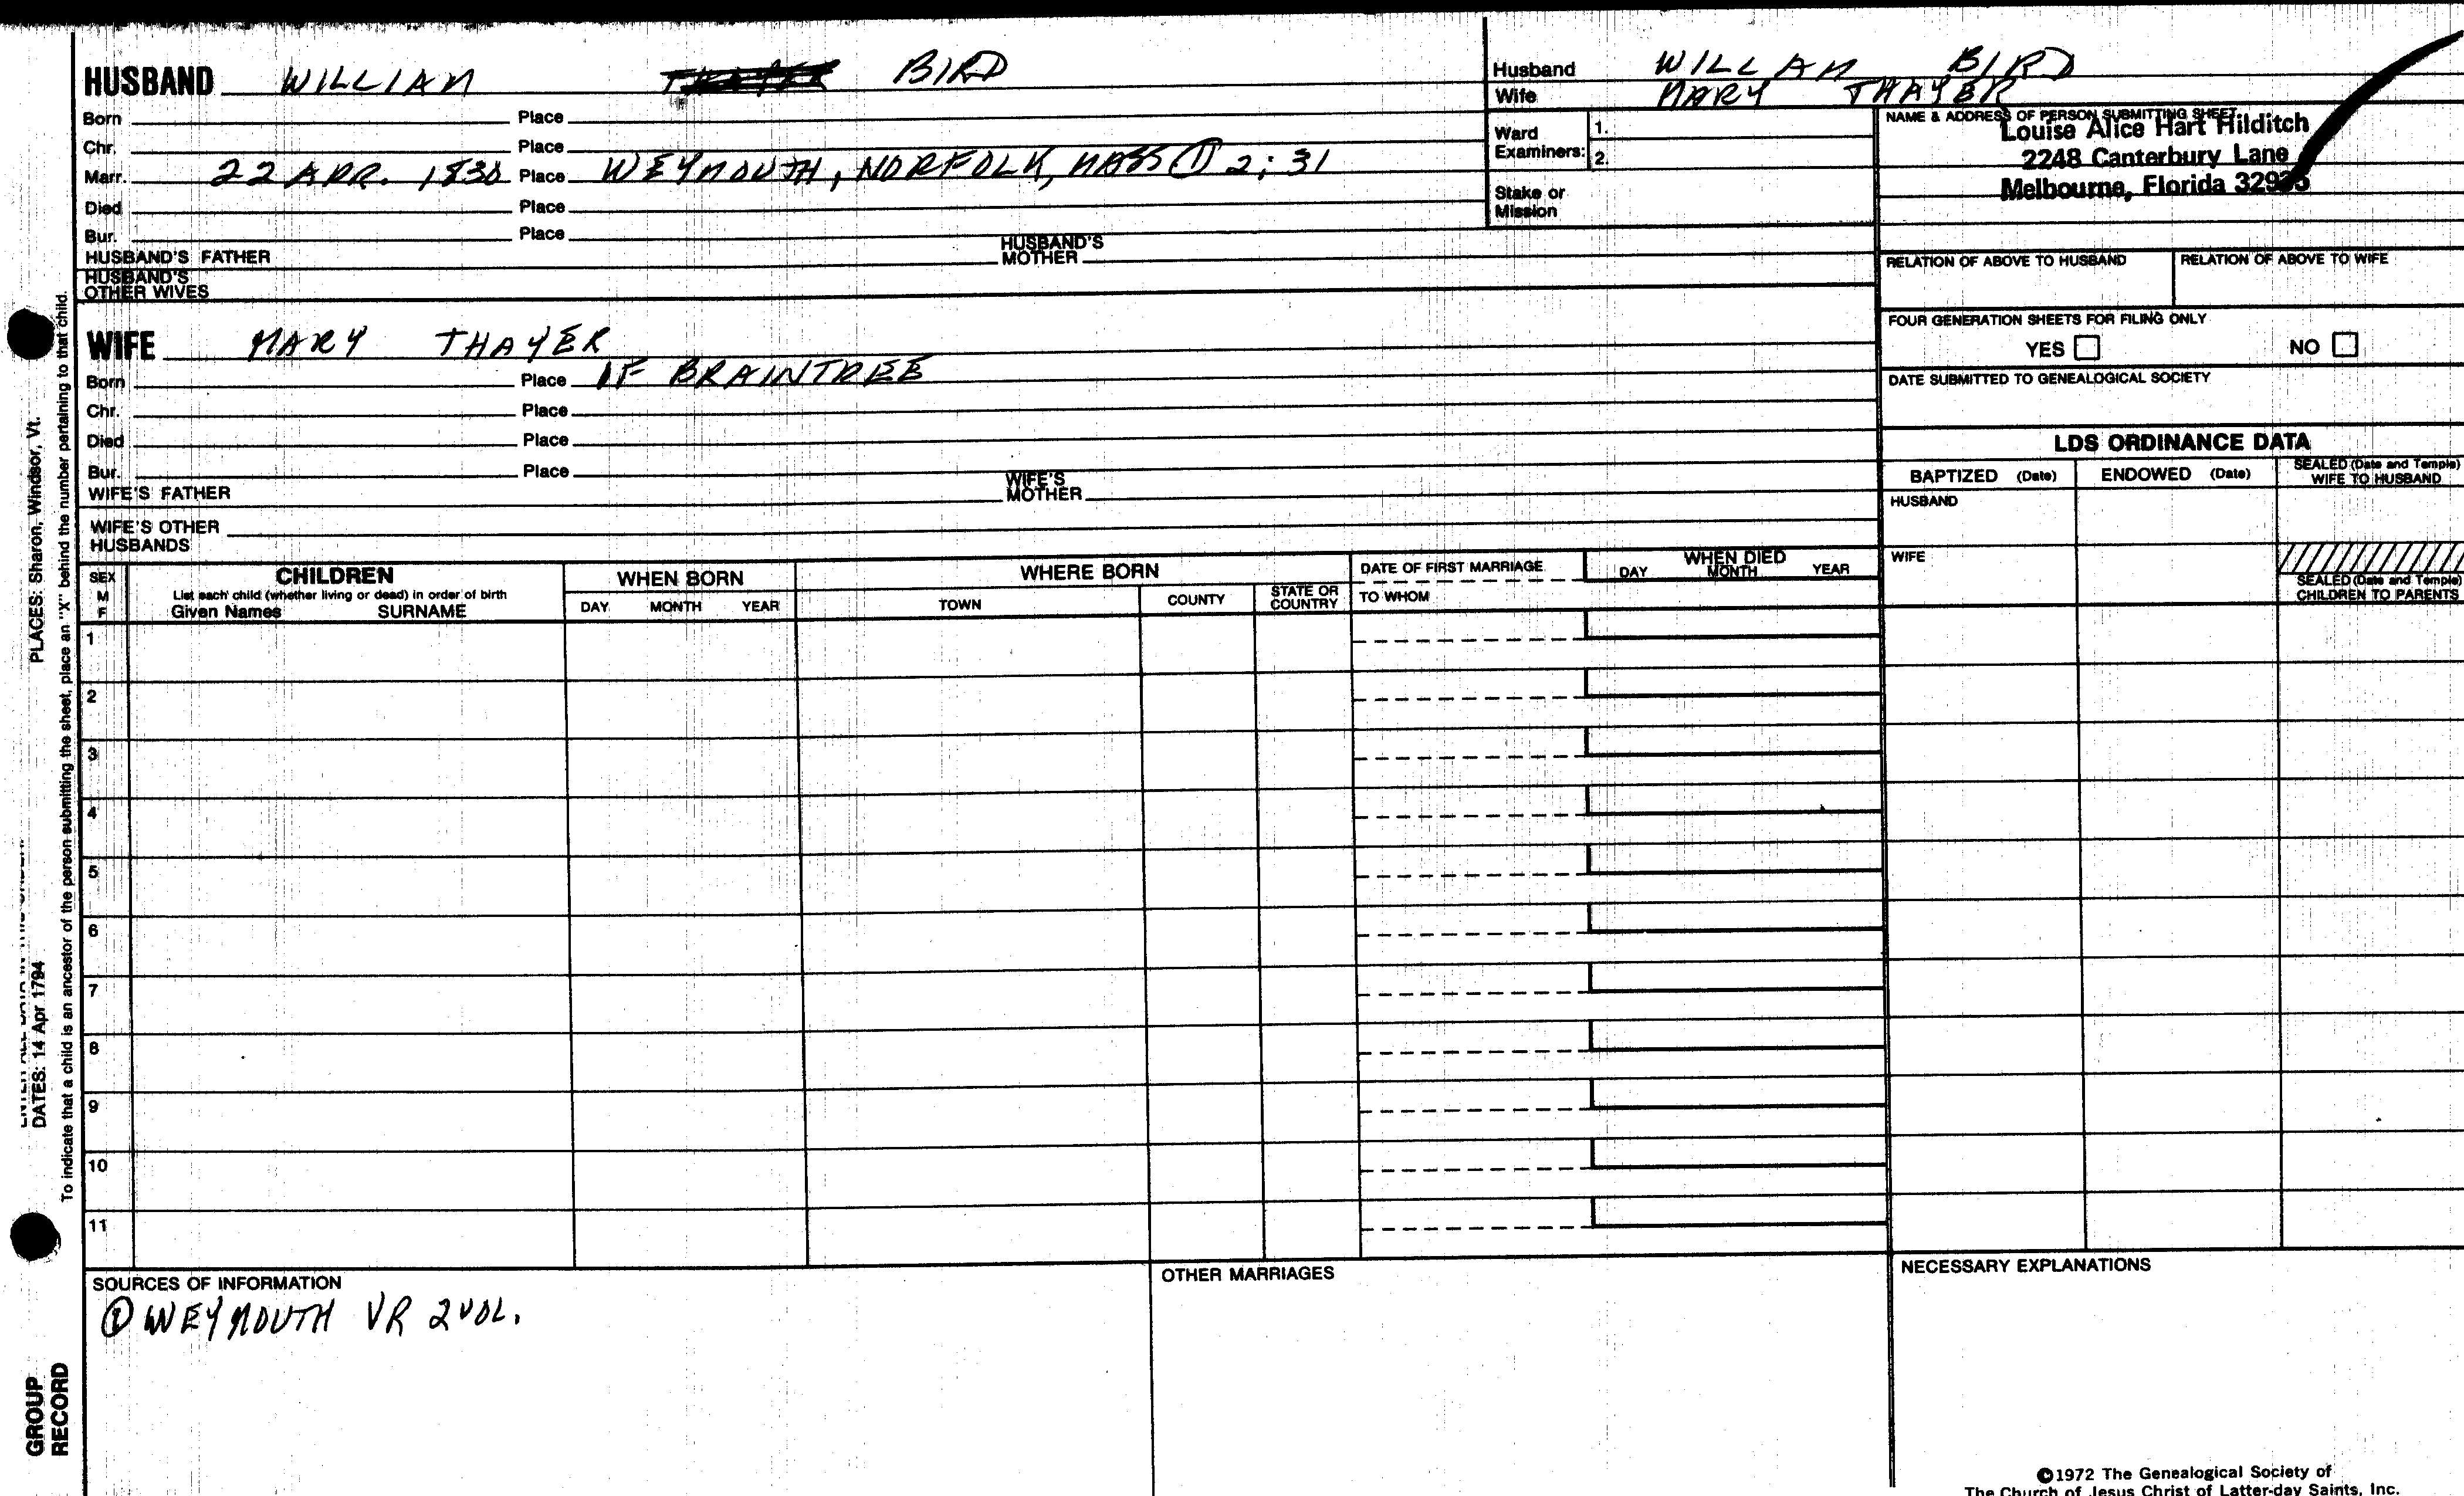 HUSBAND WILLIAM THAYER BIRD
Born Place
Chr. Place
Marr. 22 APR. 1830 Place WEYMOUTH, NORFOLK, MASS ① 2; 31
Died Place
Bur. Place
HUSBAND'S FATHER HUSBAND'S MOTHER
HUSBAND'S OTHER WIVES
WIFE MARY THAYER
Born Place OF BRAINTREE
Chr. Place
Died Place
Bur. Place
WIFE'S FATHER WIFE'S MOTHER
WIFE'S OTHER HUSBANDS
Husband WILLAM BIRD
Wife MARY THAYER
Ward Examiners: 1.
2.
Stake or Mission
NAME & ADDRESS OF PERSON SUBMITTING SHEET
Louise Alice Hart Hilditch
2248 Canterbury Lane
Melbourne, Florida 32935
RELATION OF ABOVE TO HUSBAND RELATION OF ABOVE TO WIFE
FOUR GENERATION SHEETS FOR FILING ONLY
YES NO
DATE SUBMITTED TO GENEALOGICAL SOCIETY
LDS ORDINANCE DATA
BAPTIZED (Date) ENDOWED (Date) SEALED (Date and Temple) WIFE TO HUSBAND
HUSBAND
WIFE
SEALED (Date and Temple) CHILDREN TO PARENTS
SEX M F
CHILDREN
List each child (whether living or dead) in order of birth
Given Names SURNAME
WHEN BORN
DAY MONTH YEAR
WHERE BORN
TOWN COUNTY STATE OR COUNTRY
DATE OF FIRST MARRIAGE
TO WHOM
WHEN DIED
DAY MONTH YEAR
1
2
3
4
5
6
7
8
9
10
11
SOURCES OF INFORMATION
① WEYMOUTH VR 2 VOL.
OTHER MARRIAGES
NECESSARY EXPLANATIONS
©1972 The Genealogical Society of
The Church of Jesus Christ of Latter-day Saints, Inc.
GROUP RECORD
DATES: 14 Apr 1794
PLACES: Sharon, Windsor, Vt.
To indicate that a child is an ancestor of the person submitting the sheet, place an "X" behind the number pertaining to that child.